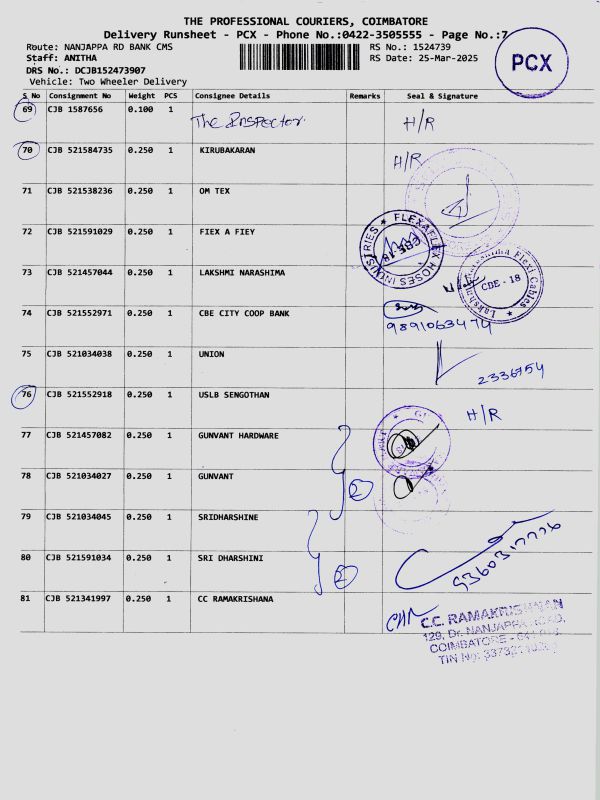 THE PROFESSIONAL COURIERS, COIMBATORE
Delivery Runsheet - PCX - Phone No.:0422-3505555 - Page No.:7
Route: NANJAPPA RD BANK CMS
RS No.: 1524739
Staff: ANITHA
RS Date: 25-Mar-2025
DRS No.: DCJB152473907
PCX
Vehicle: Two Wheeler Delivery
S No Consignment No Weight PCS Consignee Details Remarks Seal & Signature
69 CJB 1587656 0.100 1 The Inspector. H/R
70 CJB 521584735 0.250 1 KIRUBAKARAN H/R
71 CJB 521538236 0.250 1 OM TEX
72 CJB 521591029 0.250 1 FIEX A FIEY
FLEXAFLEX HOSES INDUSTRIES CBE-18
73 CJB 521457044 0.250 1 LAKSHMI NARASHIMA
Lakshmi Narashima Flexi Cables CDE - 18
74 CJB 521552971 0.250 1 CBE CITY COOP BANK
9891063474
75 CJB 521034038 0.250 1 UNION
2336754
76 CJB 521552918 0.250 1 USLB SENGOTHAN H/R
77 CJB 521457082 0.250 1 GUNVANT HARDWARE
78 CJB 521034027 0.250 1 GUNVANT
2
79 CJB 521034045 0.250 1 SRIDHARSHINE
80 CJB 521591034 0.250 1 SRI DHARSHINI
2
81 CJB 521341997 0.250 1 CC RAMAKRISHANA
C.C. RAMAKRISHNAN
129, Dr. NANJAPPA ROAD,
COIMBATORE - 641 018.
TIN No: